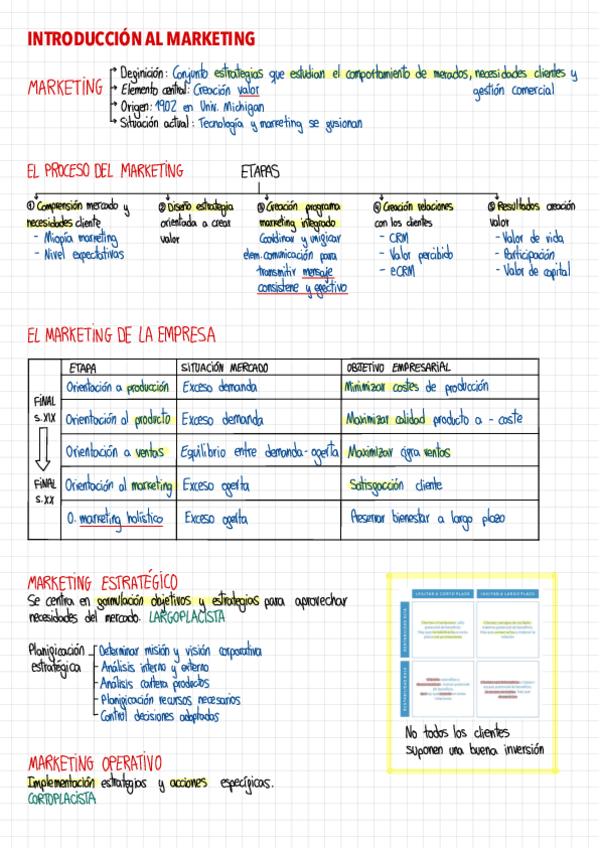 INTRODUCCIÓN AL MARKETING
MARKETING
Definición: Conjunto estrategias que estudian el comportamiento de mercados, necesidades clientes y
gestión comercial
Elemento central: Creación valor
Origen: 1902 en Univ. Michigan
Situación actual: Tecnología y marketing se fusionan
EL PROCESO DEL MARKETING
ETAPAS
① Comprensión mercado y
necesidades cliente
- Miopía marketing
- Nivel expectativas
② Diseño estrategia
orientada a crear
valor
③ Creación programa
marketing integrado
Coordinar y unificar
elem. comunicación para
transmitir mensaje
consistene y efectivo
④ Creación relaciones
con los clientes
- CRM
- Valor percibido
- eCRM
⑤ Resultados creación
valor
- Valor de vida
- Participación
- Valor de capital
EL MARKETING DE LA EMPRESA
ETAPA SITUACIÓN MERCADO OBJETIVO EMPRESARIAL
FINAL
S. XIX
Orientación a producción Exceso demanda Minimizar costes de producción
Orientación al producto Exceso demanda Maximizar calidad producto a - coste
Orientación a ventas Equilibrio entre demanda-oferta Maximizar cifra ventas
FINAL
S. XX
Orientación al marketing Exceso oferta Satisfacción cliente
O. marketing holístico Exceso oferta Preservar bienestar a largo plazo
MARKETING ESTRATÉGICO
Se centra en formulación objetivos y estrategias para aprovechar
necesidades del mercado. LARGOPLACISTA
Planificación
estratégica
Determinar misión y visión corporativa
Análisis interno y externo
Análisis cartera productos
Planificación recursos necesarios
Control decisiones adoptadas
LEALTAD A CORTO PLAZO LEALTAD A LARGO PLAZO
No todos los clientes
suponen una buena inversión
MARKETING OPERATIVO
Implementación estrategias y acciones específicas.
CORTOPLACISTA